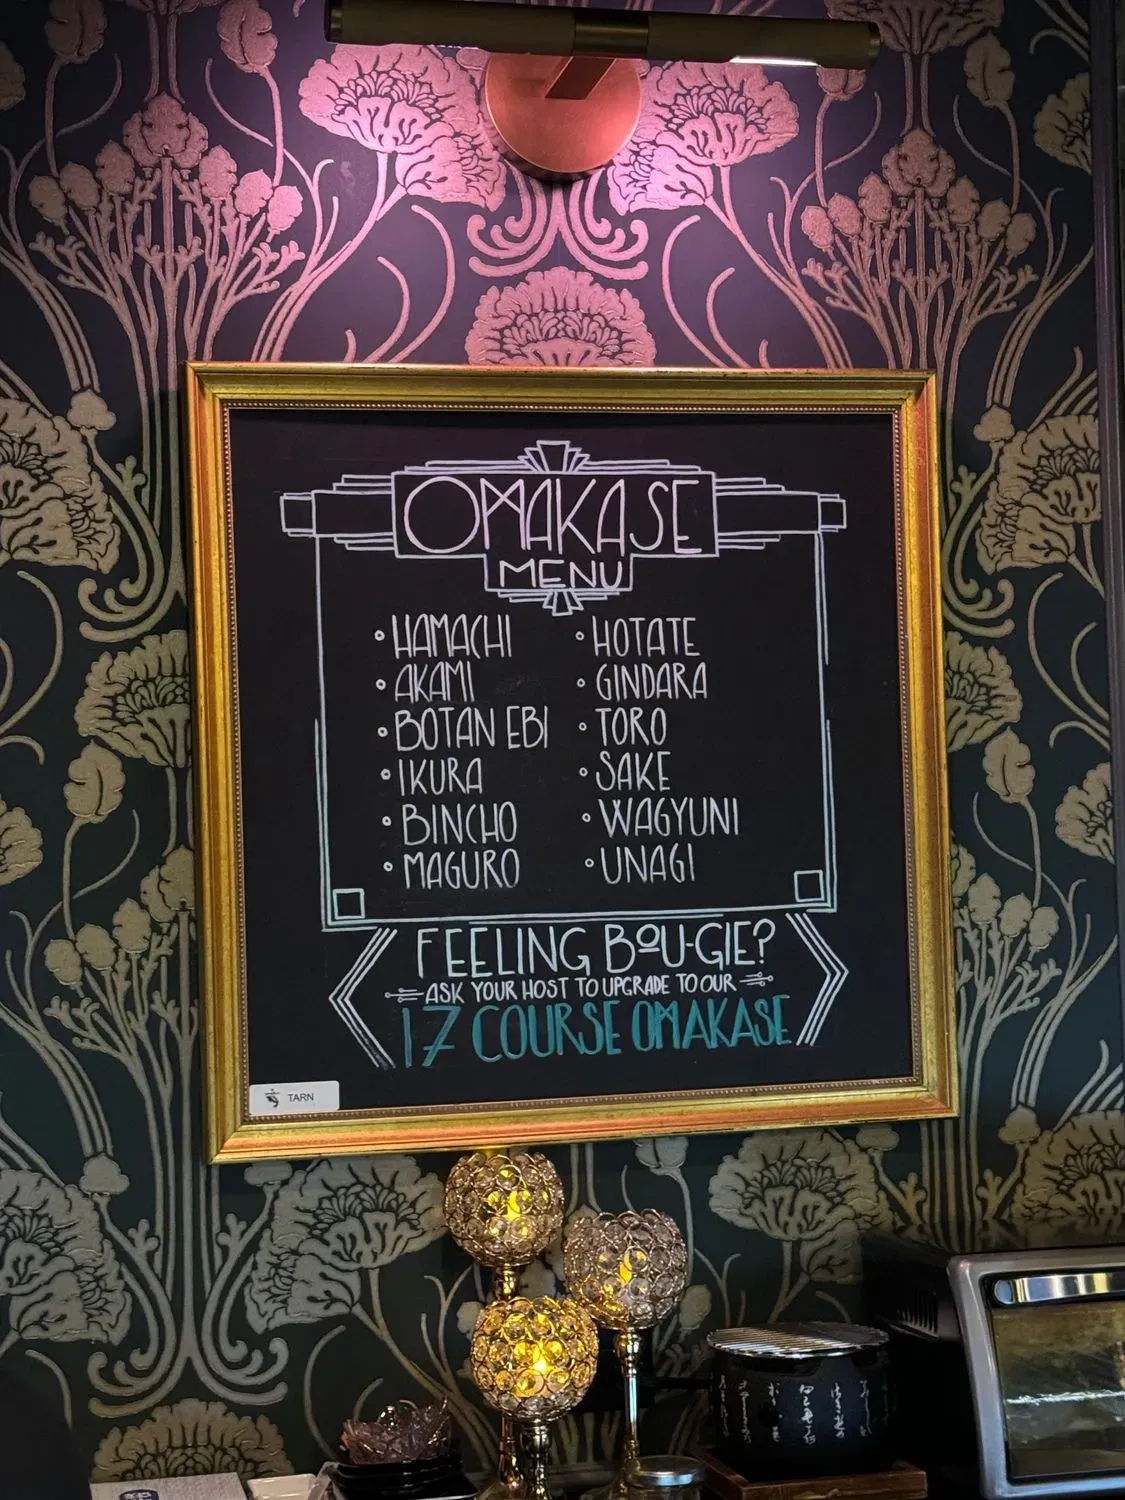 OMAKASE
MENU
• HAMACHI
• AKAMI
• BOTAN EBI
• IKURA
• BINCHO
• MAGURO
• HOTATE
• GINDARA
• TORO
• SAKE
• WAGYUNI
• UNAGI
FEELING BOU-GIE?
ASK YOUR HOST TO UPGRADE TO OUR
17 COURSE OMAKASE
TARN